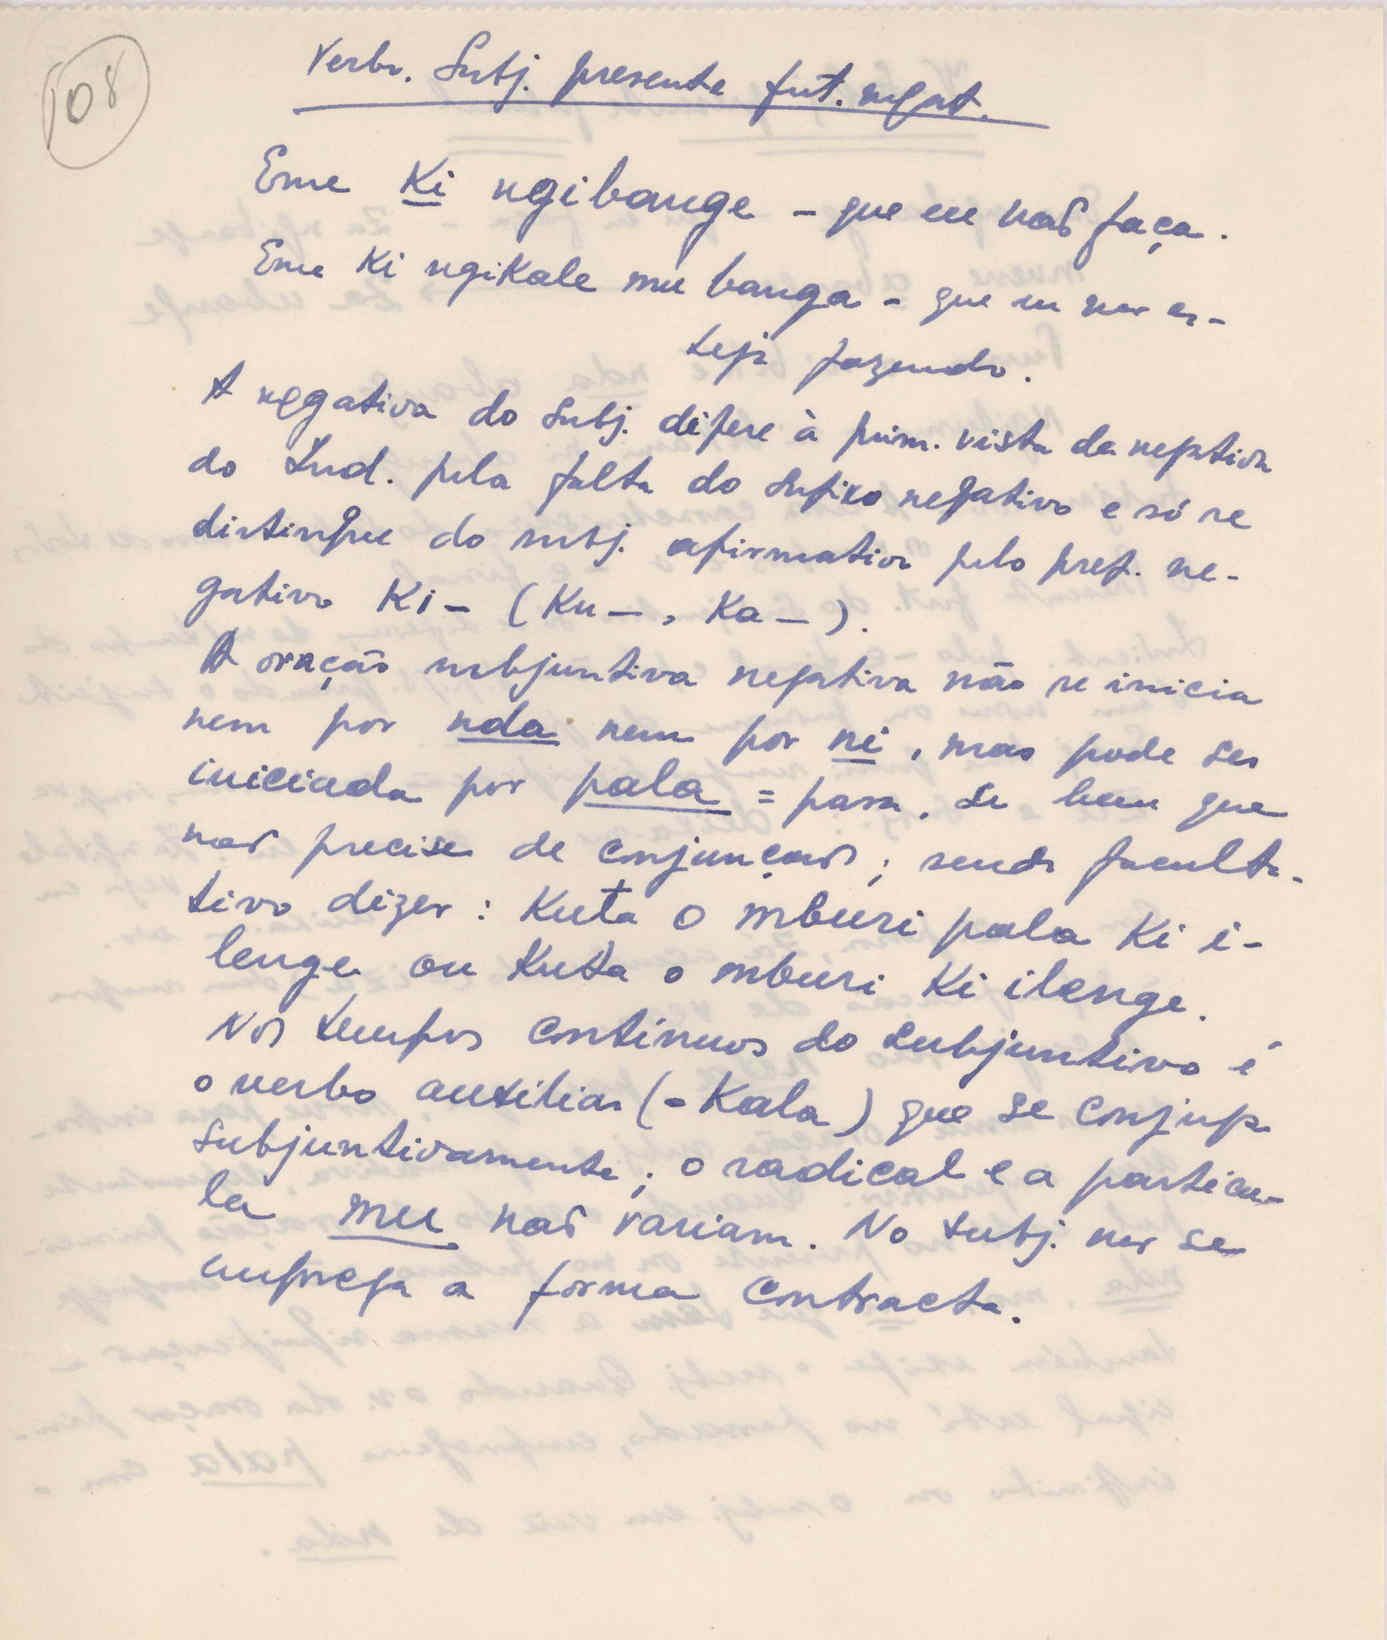 108
Verbo. Subj. presente fut. negat.
Eme Ki ngibange - que eu não faça.
Eme Ki ngikale mu banga - que eu não es-
teja fazendo.
A negativa do Subj. difere à prim. vista da negativa
do Ind. pela falta do Sufixo negativo e só se
distingue do subj. afirmativo pelo pref. ne-
gativo Ki- (Ku-, Ka-).
A oração subjuntiva negativa não se inicia
nem por nda nem por ni, mas pode ser
iniciada por pala = para, se bem que
não precise de conjunção; sendo faculta-
tivo dizer: Kuta o mburi pala Ki i-
lenge ou Kuta o mburi Ki ilenge.
Nos tempos contínuos do subjuntivo é
o verbo auxiliar (-Kala) que se conjuga
subjuntivamente; o radical e a partícu-
la mu não variam. No subj. não se
emprega a forma contracta.